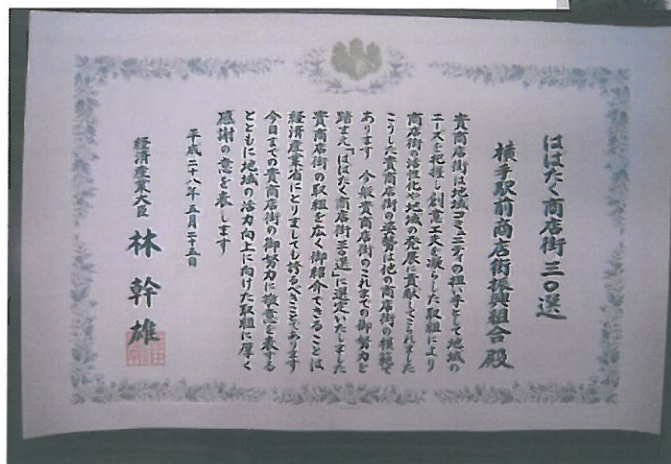 はばたく商店街三〇選
横手駅前商店街振興組合殿
貴商店街は地域コミュニティの担い手として地域の
ニーズを把握し創意工夫を凝らした取組により
商店街の活性化や地域の発展に貢献してこられました
こうした貴商店街の姿勢は他の商店街の模範で
あります 今般貴商店街のこれまでの御努力を
踏まえ「はばたく商店街三〇選」に選定いたしました
貴商店街の取組を広く御紹介できることは
経済産業省にとりましても誇るべきことであります
今日までの貴商店街の御努力に敬意を表する
とともに地域の活力向上に向けた取組に厚く
感謝の意を表します
平成二十八年五月二十五日
経済産業大臣 林幹雄